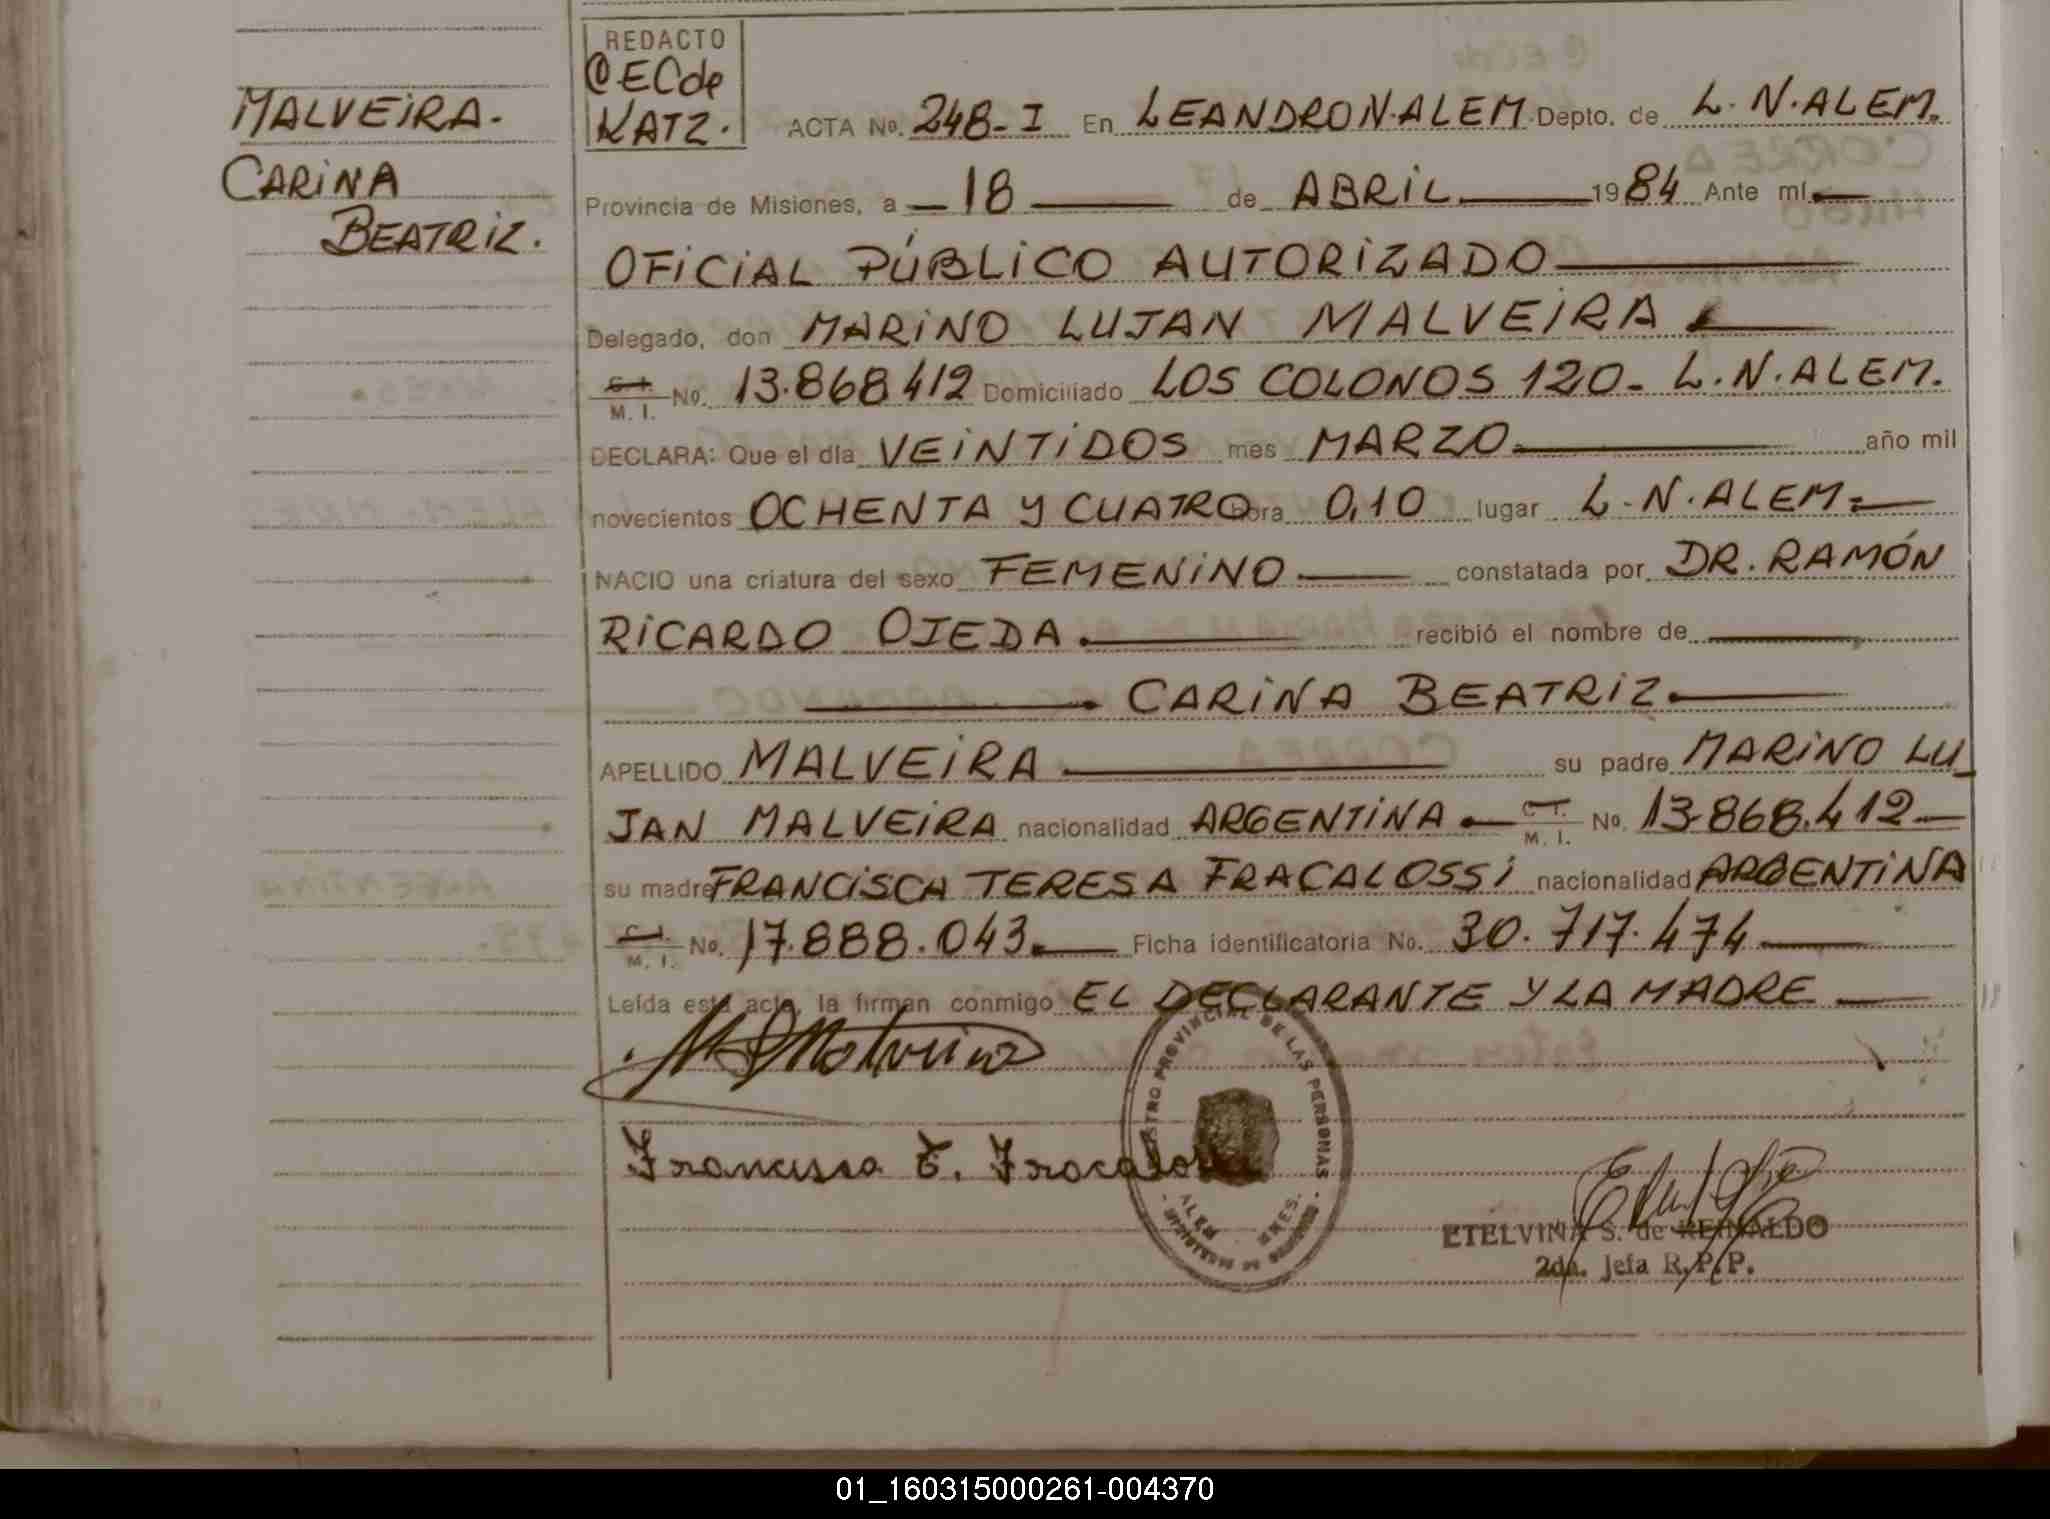 MALVEIRA.
CARINA
BEATRIZ.
REDACTO
ECde
KATZ.
ACTA No. 248-I En LEANDRO N. ALEM Depto. de L. N. ALEM.
Provincia de Misiones, a 18 de ABRIL 1984 Ante mí
OFICIAL PÚBLICO AUTORIZADO
Delegado, don MARINO LUJAN MALVEIRA
C.I.
M. I. No. 13.868412 Domiciliado LOS COLONOS 120- L.N.ALEM.
DECLARA: Que el día VEINTIDOS mes MARZO año mil
novecientos OCHENTA Y CUATRO hora 0,10 lugar L.N.ALEM=
NACIO una criatura del sexo FEMENINO constatada por DR. RAMÓN
RICARDO OJEDA. recibió el nombre de
CARINA BEATRIZ.
APELLIDO MALVEIRA. su padre MARINO LU_
JAN MALVEIRA nacionalidad ARGENTINA C.I.
M. I. No. 13.868.412
su madre FRANCISCA TERESA FRACALOSSI nacionalidad ARGENTINA
C.I.
M. I. No. 17.888.043. Ficha identificatoria No. 30.717.474
Leída esta acta, la firman conmigo EL DECLARANTE Y LA MADRE
Malveira
REGISTRO PROVINCIAL DE LAS PERSONAS
ALEM MNES.
Francisca T. Fracalossi
ETELVINA S. de REINALDO
2da. Jefa R.P.P.
01_160315000261-004370